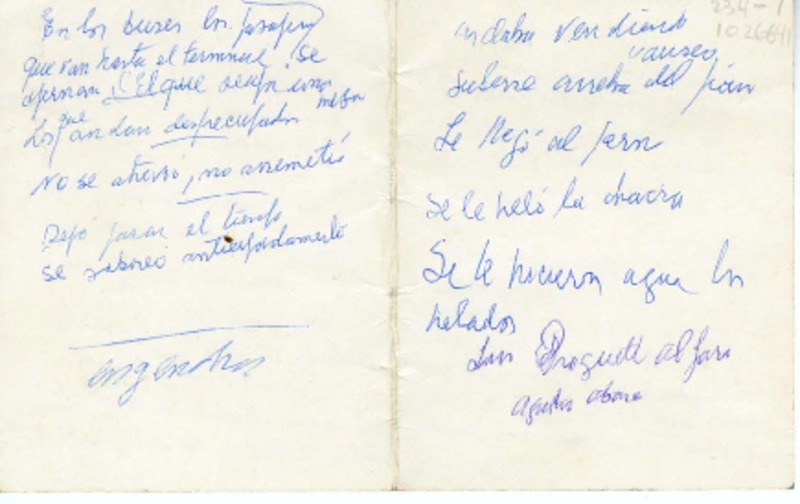 En los buses los pasajeros
que van hasta el terminal, se
apernan. El que ocupa una
mesa
Los que andan despreocupados
No se atrevió, no arremetió
Dejó pasar el tiempo
se saboreó anticipadamente
234-1
1026641
andaba vendiendo
Subirse arriba del piano
Le llegó al pern
Se le heló la chacra
Se le hicieron agua los
helados